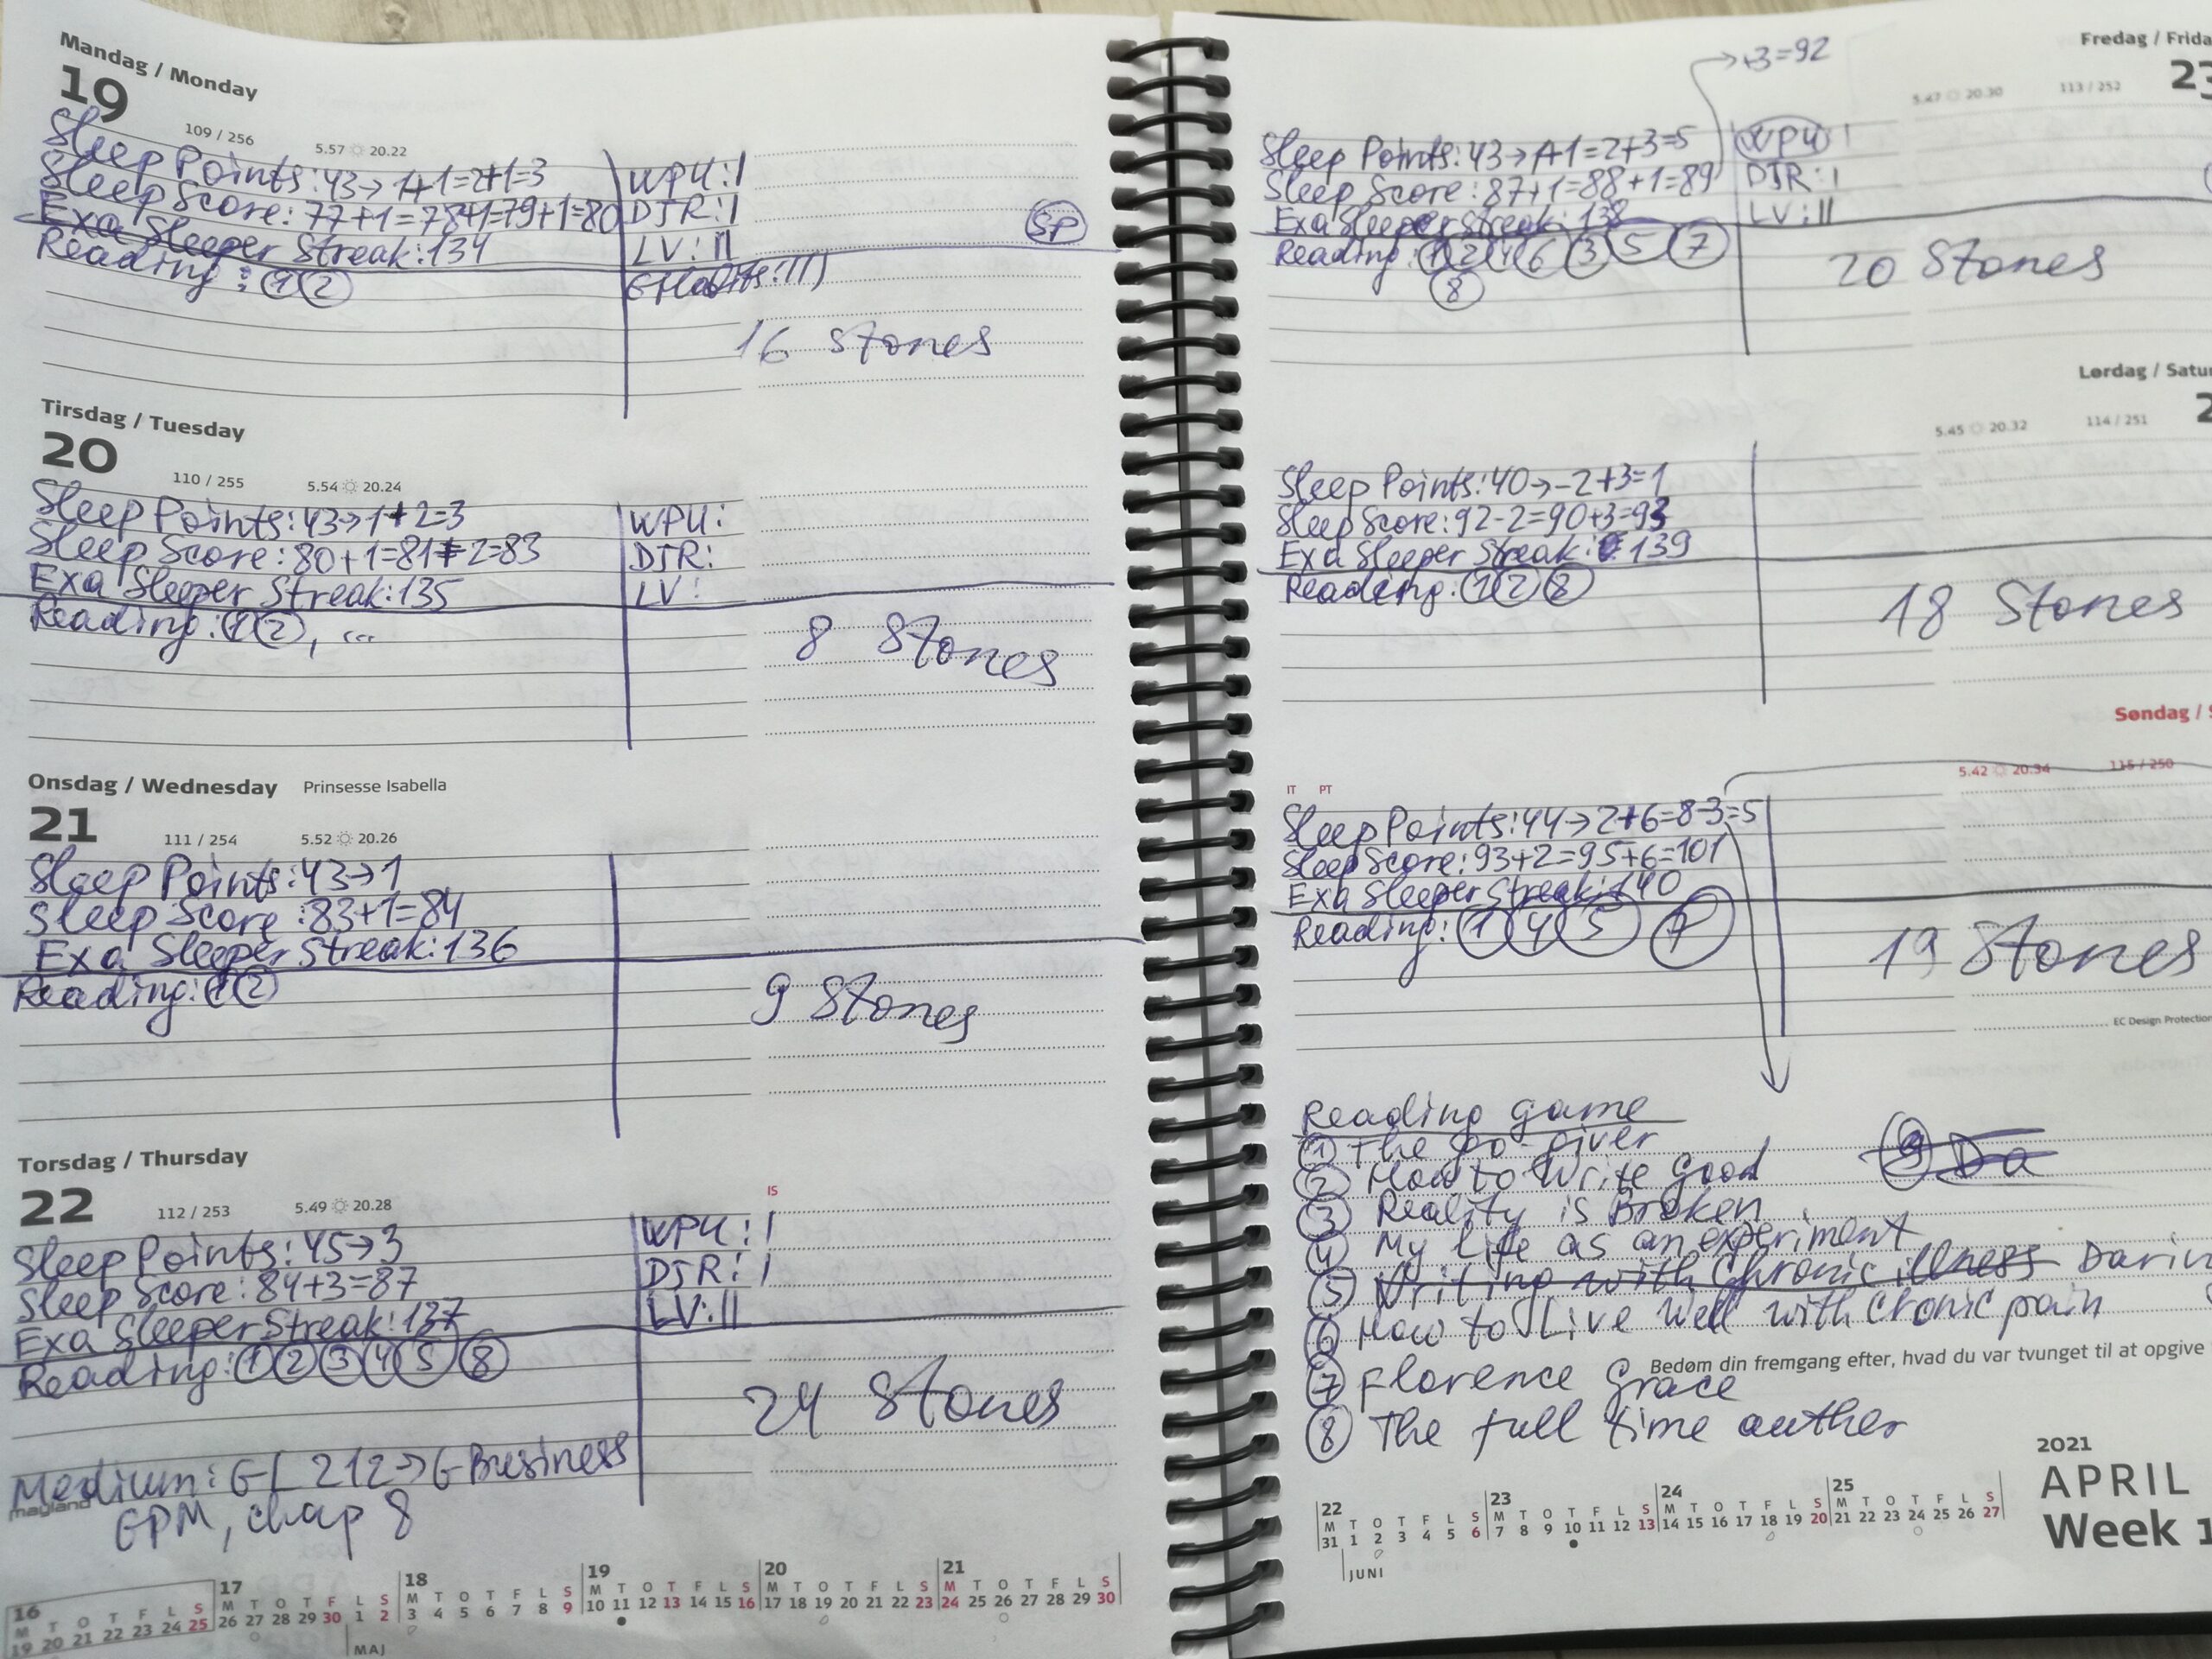 Mandag / Monday
19
109 / 256 5.57 20.22
Sleep Points: 43→1+1=2+1=3
Sleep Score: 77+1=78+1=79+1=80
Exa Sleeper Streak: 134
Reading: 1 2
WPU: I
DJR: I
LV: II
SP
16 stones
Tirsdag / Tuesday
20
110 / 255 5.54 20.24
Sleep Points: 43→1+2=3
Sleep Score: 80+1=81+2=83
Exa Sleeper Streak: 135
Reading: 1 2, ...
WPU:
DJR:
LV:
8 Stones
Onsdag / Wednesday Prinsesse Isabella
21
111 / 254 5.52 20.26
Sleep Points: 43→1
Sleep Score: 83+1=84
Exa Sleeper Streak: 136
Reading: 1 2
9 Stones
Torsdag / Thursday
22
112 / 253 5.49 20.28
IS
Sleep Points: 45→3
Sleep Score: 84+3=87
Exa Sleeper Streak: 137
Reading: 1 2 3 4 5 8
WPU: I
DJR: I
LV: II
24 Stones
Medium: GL 212→G Business
mayland
GPM, chap 8
16 17 18 19 20 21
M T O T F L S M T O T F L S M T O T F L S M T O T F L S M T O T F L S M T O T F L S
19 20 21 22 23 24 25 26 27 28 29 30 1 2 3 4 5 6 7 8 9 10 11 12 13 14 15 16 17 18 19 20 21 22 23 24 25 26 27 28 29 30
MAJ
+3=92
Fredag / Frida
23
5.47 20.30 113 / 252
Sleep Points: 43→1+1=2+3=5
Sleep Score: 87+1=88+1=89
Exa Sleeper Streak: 138
Reading: 1 2 4 6 3 5 7
8
WPU I
DJR: I
LV: II
20 Stones
Lørdag / Satur
2
5.45 20.32 114 / 251
Sleep Points: 40→-2+3=1
Sleep Score: 92-2=90+3=93
Exa Sleeper Streak: 139
Reading: 1 2 8
18 Stones
Søndag / S
5.42 20.34 115 / 250
IT PT
Sleep Points: 44→2+6=8-3=5
Sleep Score: 93+2=95+6=101
Exa Sleeper Streak: 140
Reading: 1 4 5 7
19 Stones
EC Design Protection
Reading game
1 The go-giver
2 How to Write Good
9 Da
3 Reality is Broken
4 My life as an experiment
5 Writing with Chronic illness Darin
6 How to Live Well with Cronic pain
Bedøm din fremgang efter, hvad du var tvunget til at opgive
7 Florence Grace
8 The full time auther
22 23 24 25
M T O T F L S M T O T F L S M T O T F L S M T O T F L S
31 1 2 3 4 5 6 7 8 9 10 11 12 13 14 15 16 17 18 19 20 21 22 23 24 25 26 27
JUNI
2021
APRIL
Week 1